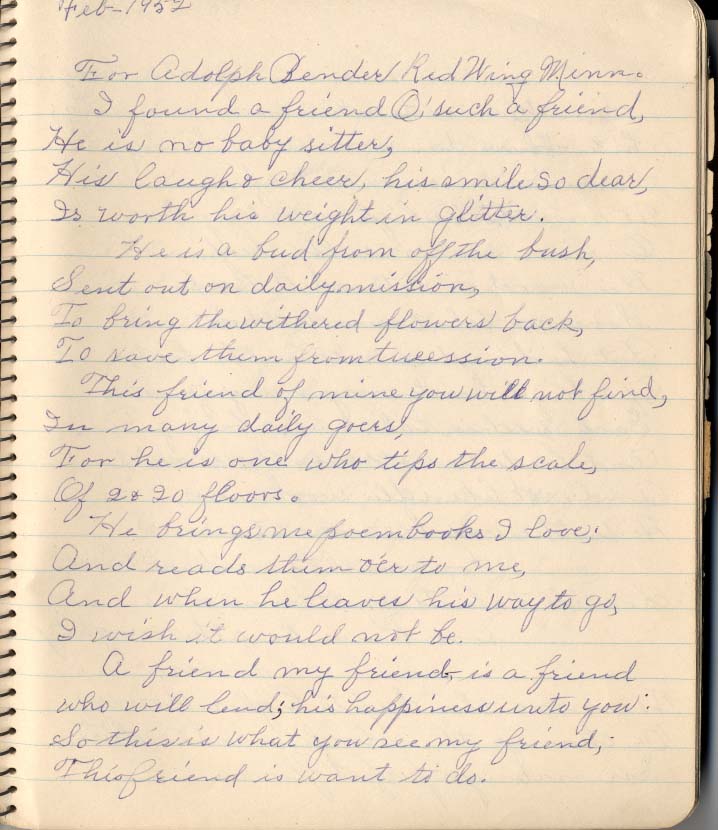 Feb-1952
For Adolph Bender Red Wing Minn.
I found a friend O, such a friend,
He is no baby sitter,
His laugh & cheer, his smile so dear,
Is worth his weight in glitter.
He is a bud from off the bush,
Sent out on daily mission,
To bring the withered flowers back,
To save them from
This friend of mine you will not find,
In many daily goers,
For he is one who tips the scale,
Of 2 & 20 floors.
He brings me poem books I love;
And reads them o'er to me,
And when he leaves his way to go,
I wish it would not be.
A friend my friend, is a friend
who will lend; his happiness unto you:
So this is what you see my friend;
This friend is want to do.